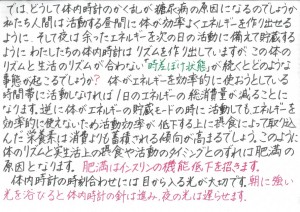 では、どうして体内時計のかく乱が糖尿病の原因になるのでしょうか
私たち人間は活動する昼間に体が効率よくエネルギーを作り出せる
ように、そして夜は余ったエネルギーを次の日の活動に備えて貯蔵する
ようにわたしたちの体内時計はリズムを作り出していますが、この体の
リズムと生活のリズムが合わない"時差ぼけ状態"が続くとどのような
事態が起こるでしょうか？ 体がエネルギーを効率的に使おうとしている
時間帯に活動しなければ1日のエネルギーの総消費量が減ることに
なります。逆に体がエネルギーの貯蔵モードの時に活動してもエネルギーを
効率的に使えないため活動効率が低下する上に摂食によって取り込
んだ栄養素は消費よりも蓄積される傾向が高まるでしょう。このように
体のリズムと実生活上の摂食や活動のタイミングとのずれは肥満の
原因となります。肥満はインスリンの機能低下を招きます。
体内時計の時刻合わせには目から入る光が大切です。朝に強い
光を浴びると体内時計の針は進み、夜の光は遅らせます。